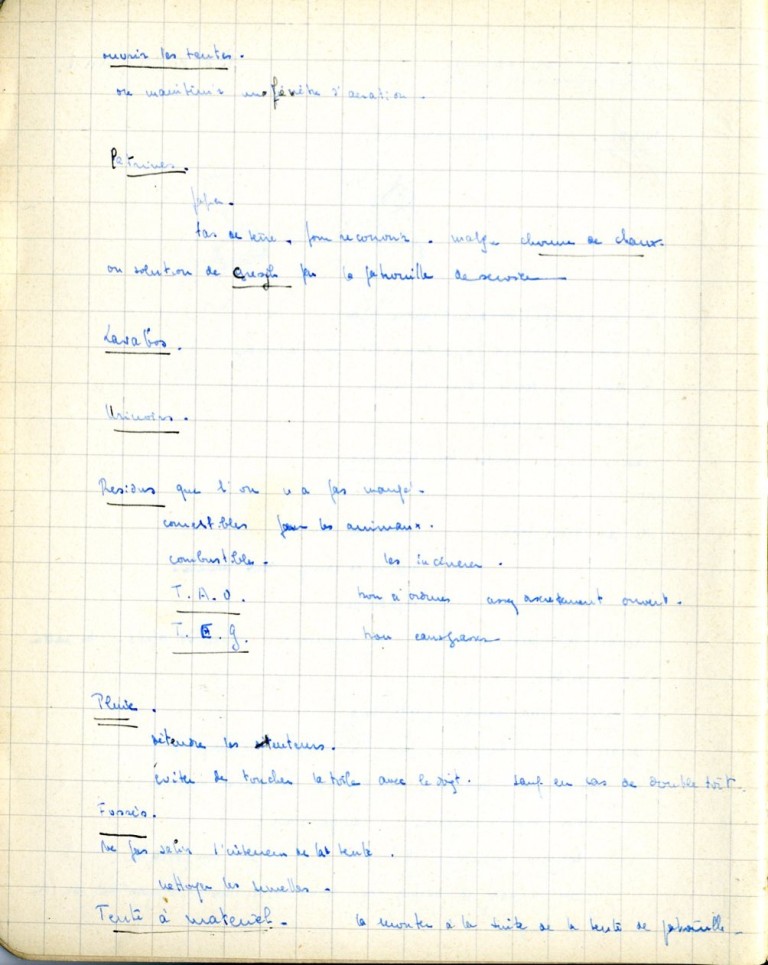 ouvrir les tentes.
ou maintenir une fenêtre d'aération.
Latrines.
papier.
tas de terre, pour recouvrir. chlorure de chaux.
ou solution de Cresyl par la patrouille de service
Lavabos.
Urinoirs.
Residus que l'on n'a pas mangé.
comestibles pour les animaux.
combustibles. les incinerer.
T. A. O. trou à ordures ouvert.
T. E. G. trou eaux grasses
Pluie.
détendre les tendeurs.
éviter de toucher la toile avec le doigt. sauf en cas de double toit
Fossés.
Ne pas salir l'interieur de la tente.
nettoyer les semelles.
Tente à materiel. la monter à la suite de la tente de patrouille